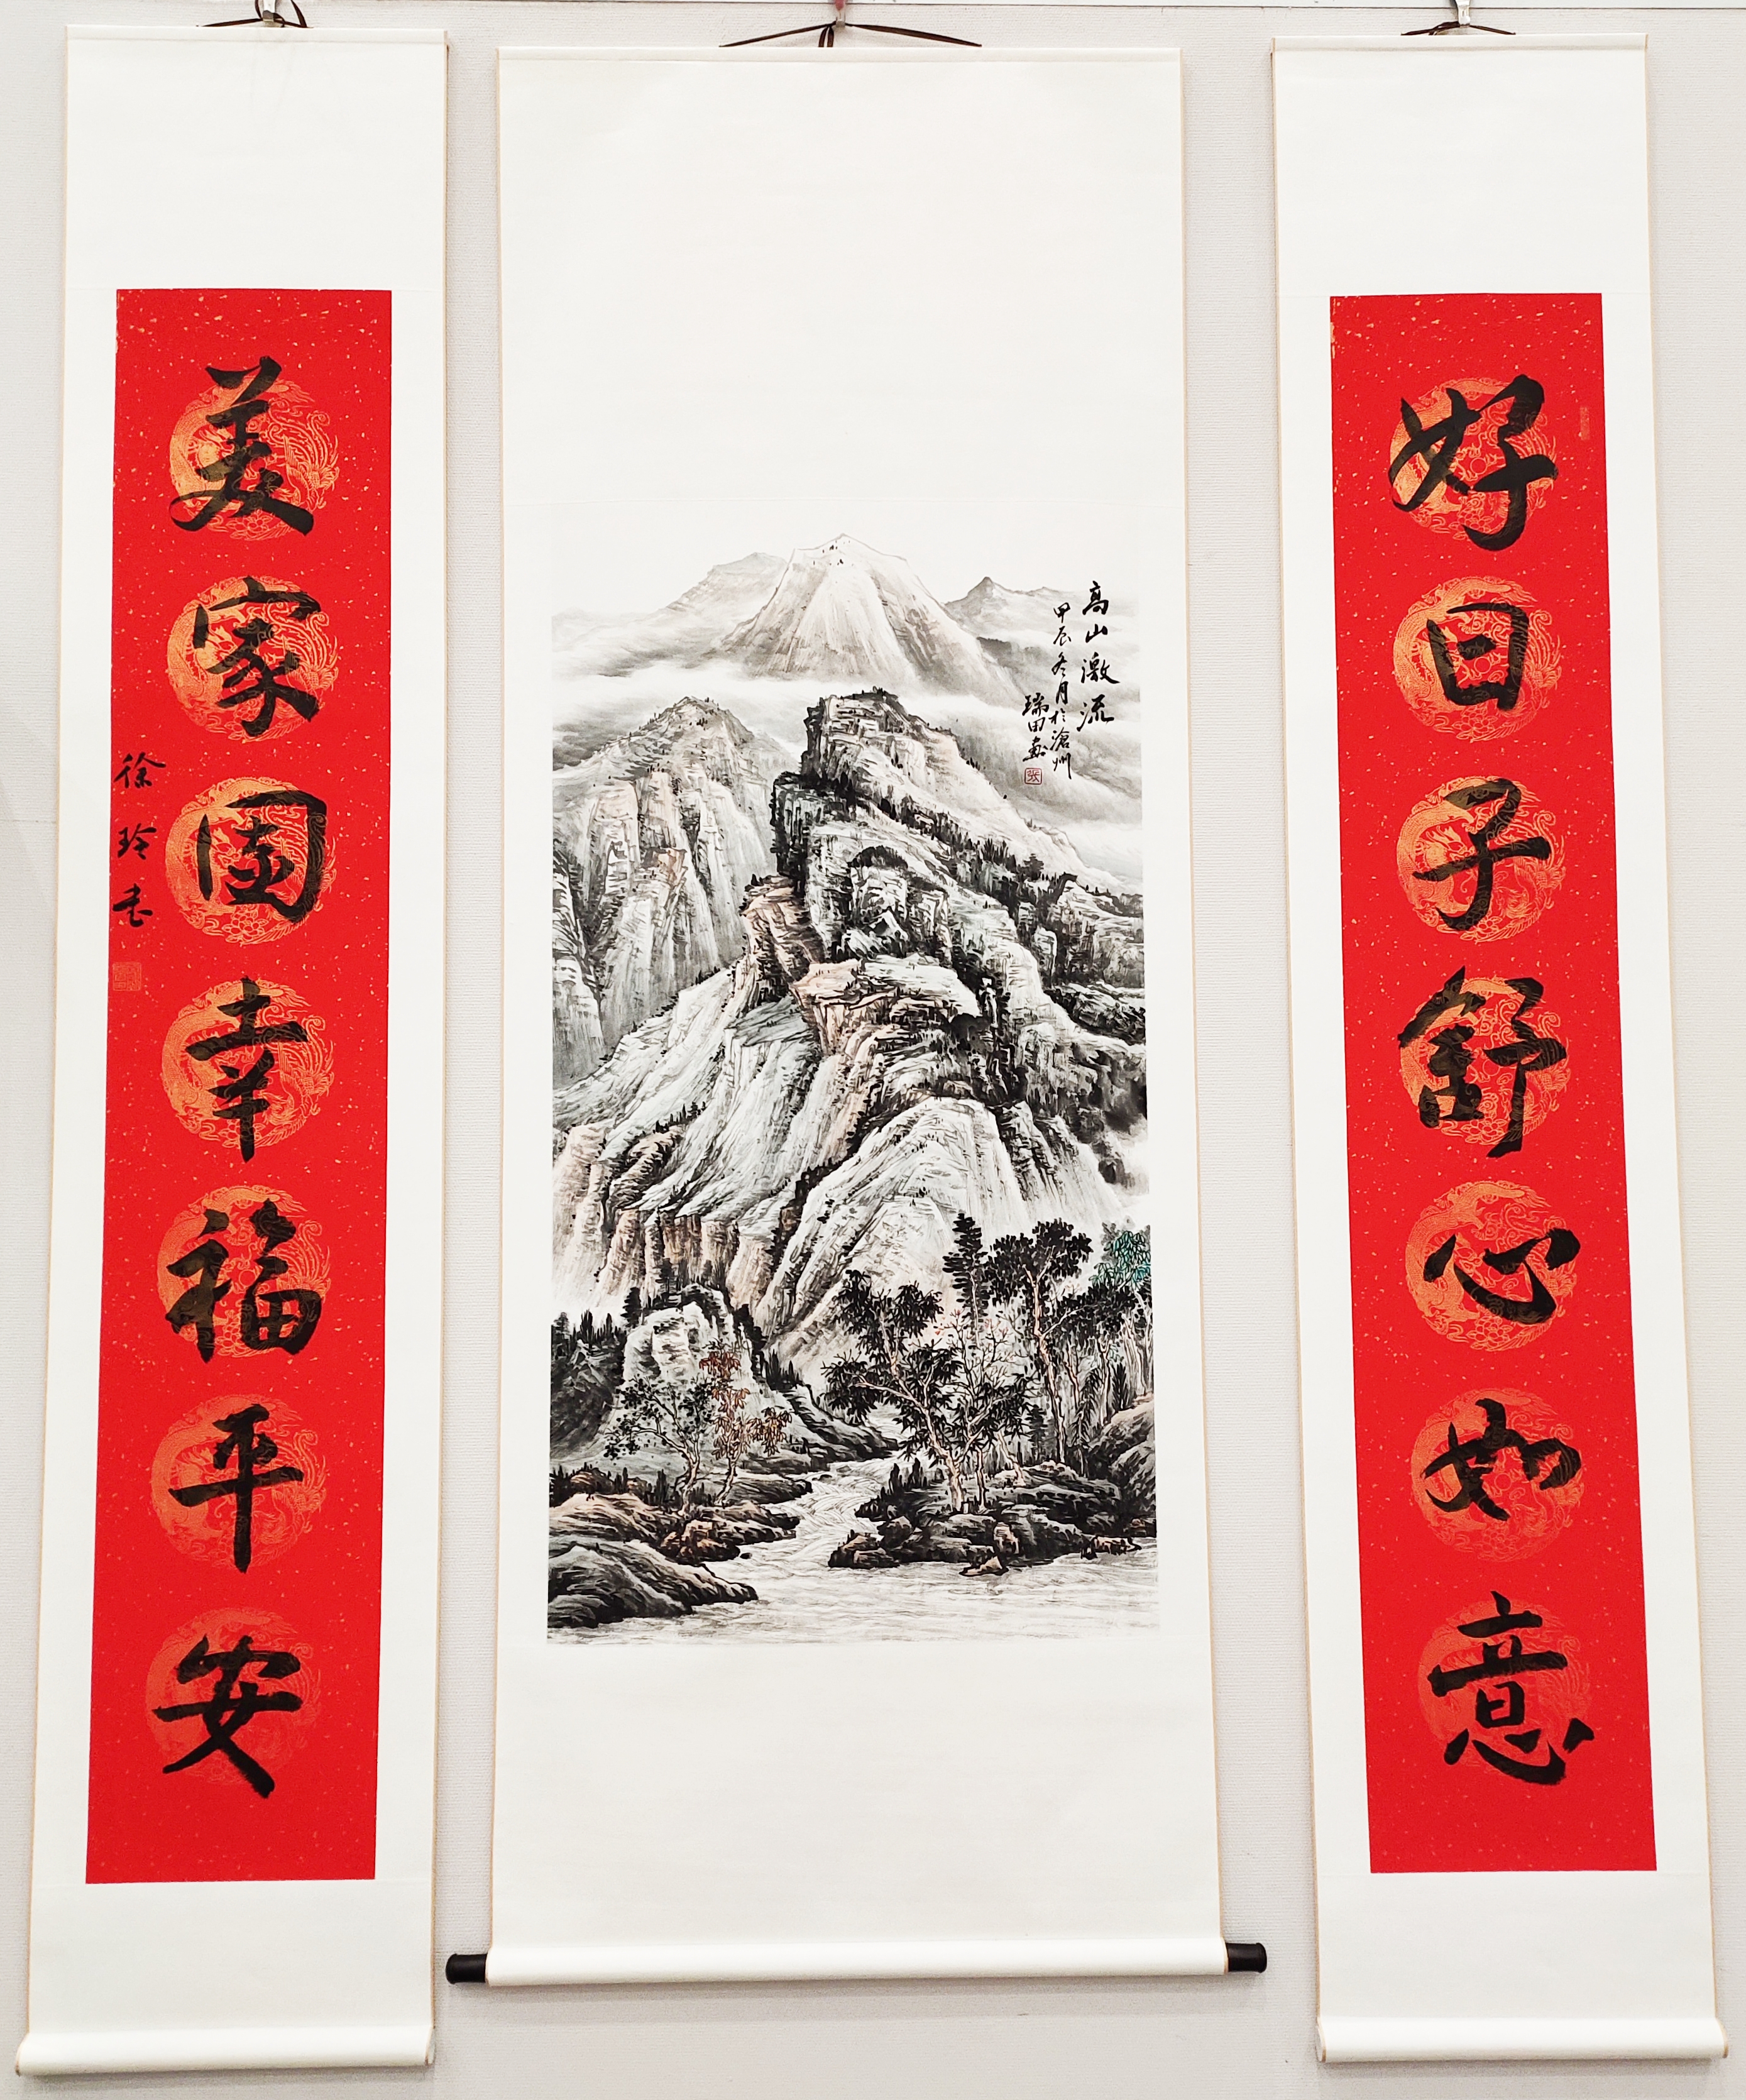 好日子舒心如意
高山激流
甲辰冬月於滄州
瑞田画
美家园幸福平安
徐玲书